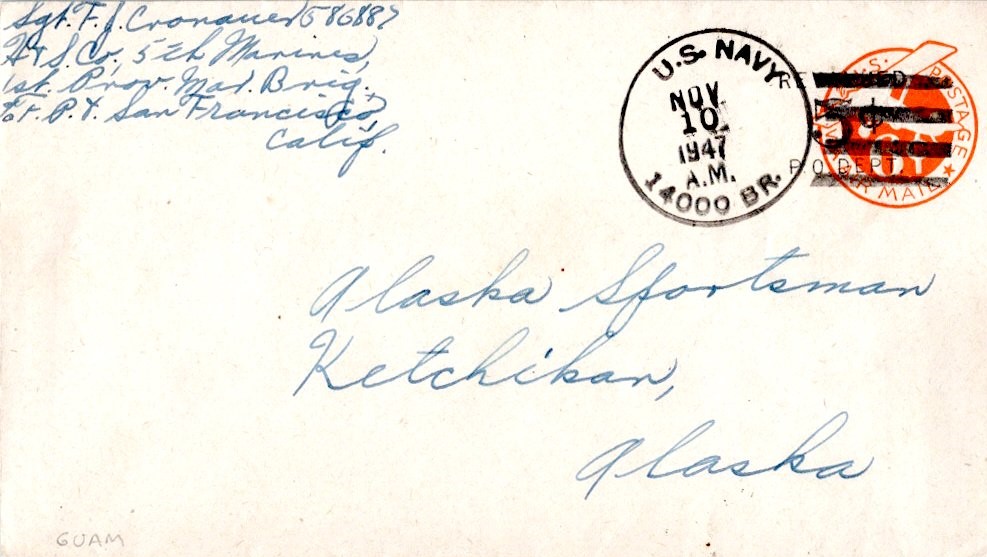 Sgt. F. J. Cronauer 586887
H & S. Co. 5th Marines,
1st. Prov. Mar. Brig.,
F. P. O. San Francisco,
Calif.
U.S. NAVY
NOV
10
1947
A.M.
14000 BR.
REVALUED
5¢
P.O. DEPT.
U.S. POSTAGE
6¢
AIR MAIL
Alaska Sportsman
Ketchikan,
Alaska
GUAM